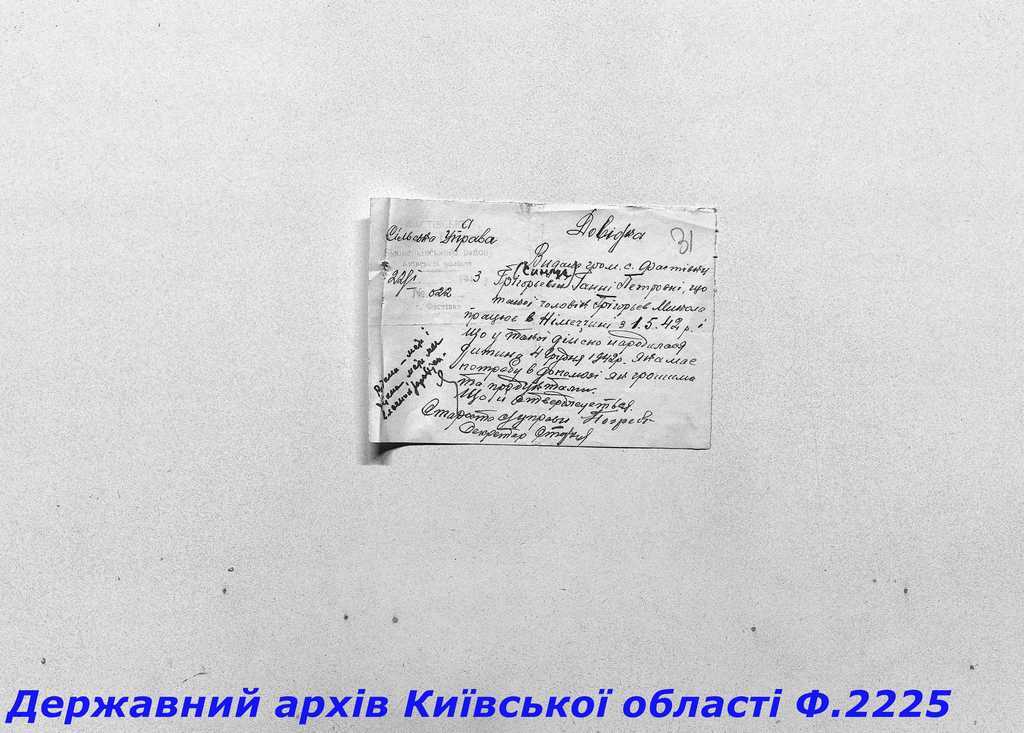 Довідка
31
Сільська Управа
22/I 3
No 022
Видана гром. с. Фастівки
(синув)
Григорьевій Ганні Петровні, що
такої чоловік Григорьев Микола
працює в Німеччині з 1.5.42 р. і
що у такої дійсно народилась
дитина 4 грудня 1942р. яка має
потребу в допомозі як грошима
та продуктами.
Що и стверджується.
Староста с/управи
Секретар
Державний архів Київської області Ф.2225